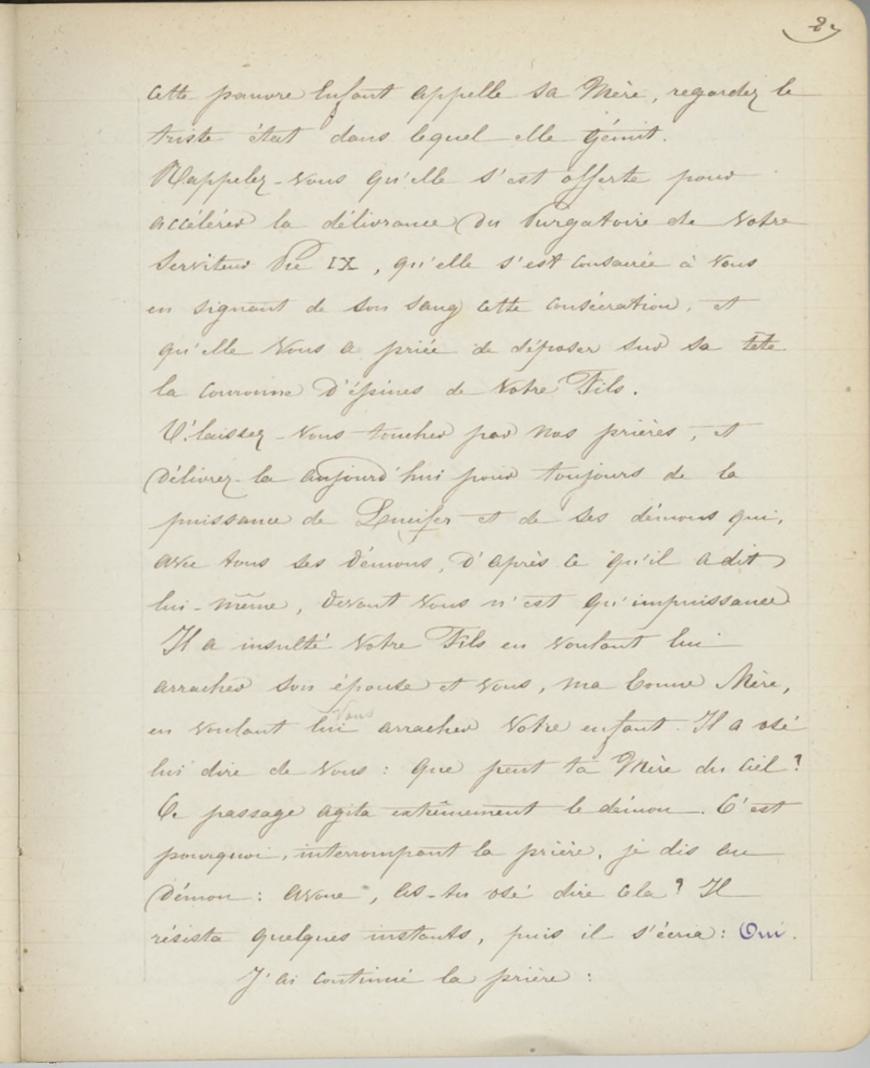 27
cette pauvre Enfant appelle sa Mère, regardez le
triste état dans lequel elle gémit.
Rappelez-vous qu'elle s'est offerte pour
accélérer la délivrance du Purgatoire de Votre
Serviteur Pie IX, qu'elle s'est consacrée à Vous
en signant de son sang cette consécration, et
qu'elle Vous a priée de déposer sur sa tête
la couronne d'épines de Votre Fils.
Laissez-Vous toucher par nos prières, et
délivrez-la aujourd'hui pour toujours de la
puissance de Lucifer et de ses démons qui,
avec tous ses démons, d'après ce qu'il a dit
lui-même, devant Vous n'est qu'impuissance
Il a insulté Votre Fils en voulant lui
arracher son épouse et Vous, ma bonne Mère,
en voulant lui Vous arracher Votre enfant. Il a osé
lui dire de Vous : que peut ta Mère du Ciel ?
Ce passage agita extrêmement le démon. C'est
pourquoi, interrompant la prière, je dis au
démon : avoue, as-tu osé dire cela ? Il
résista quelques instants, puis il s'écria : Oui.
J'ai continué la prière :